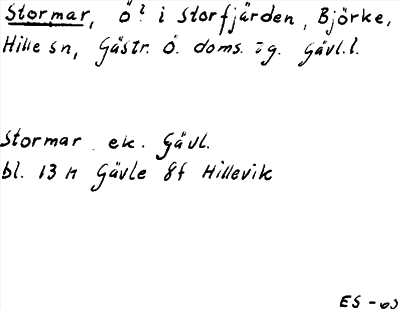 Stormar, Ö? i Storfjärden, Björke,
Hille sn, Gästr. Ö. doms. tg. Gävl.l.
Stormar ek. Gävl.
bl. 13 H Gävle 8f Hillevik
ES -